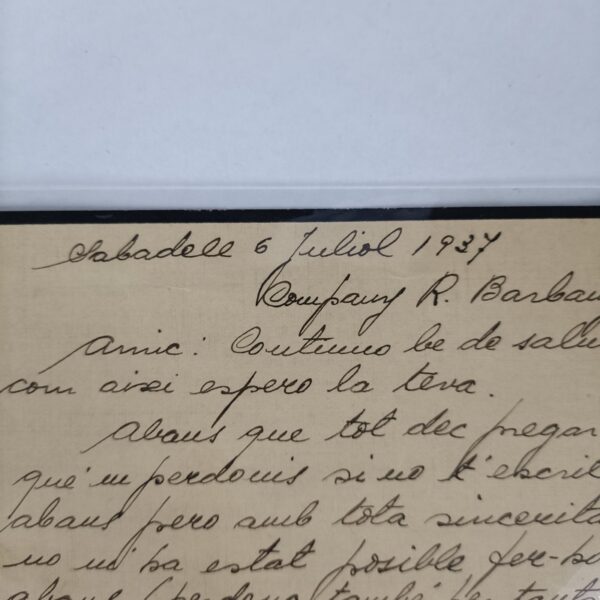 Sabadell 6 Juliol 1937
Company R. Barbany
Amic: Continuo be de salu
com aixi espero la teva.
Abans que tot dec pregar
que'm perdonis si no t'escri
abans pero amb tota sincerita
no m'ha estat posible fer-ho
abans (perdona també per tanta